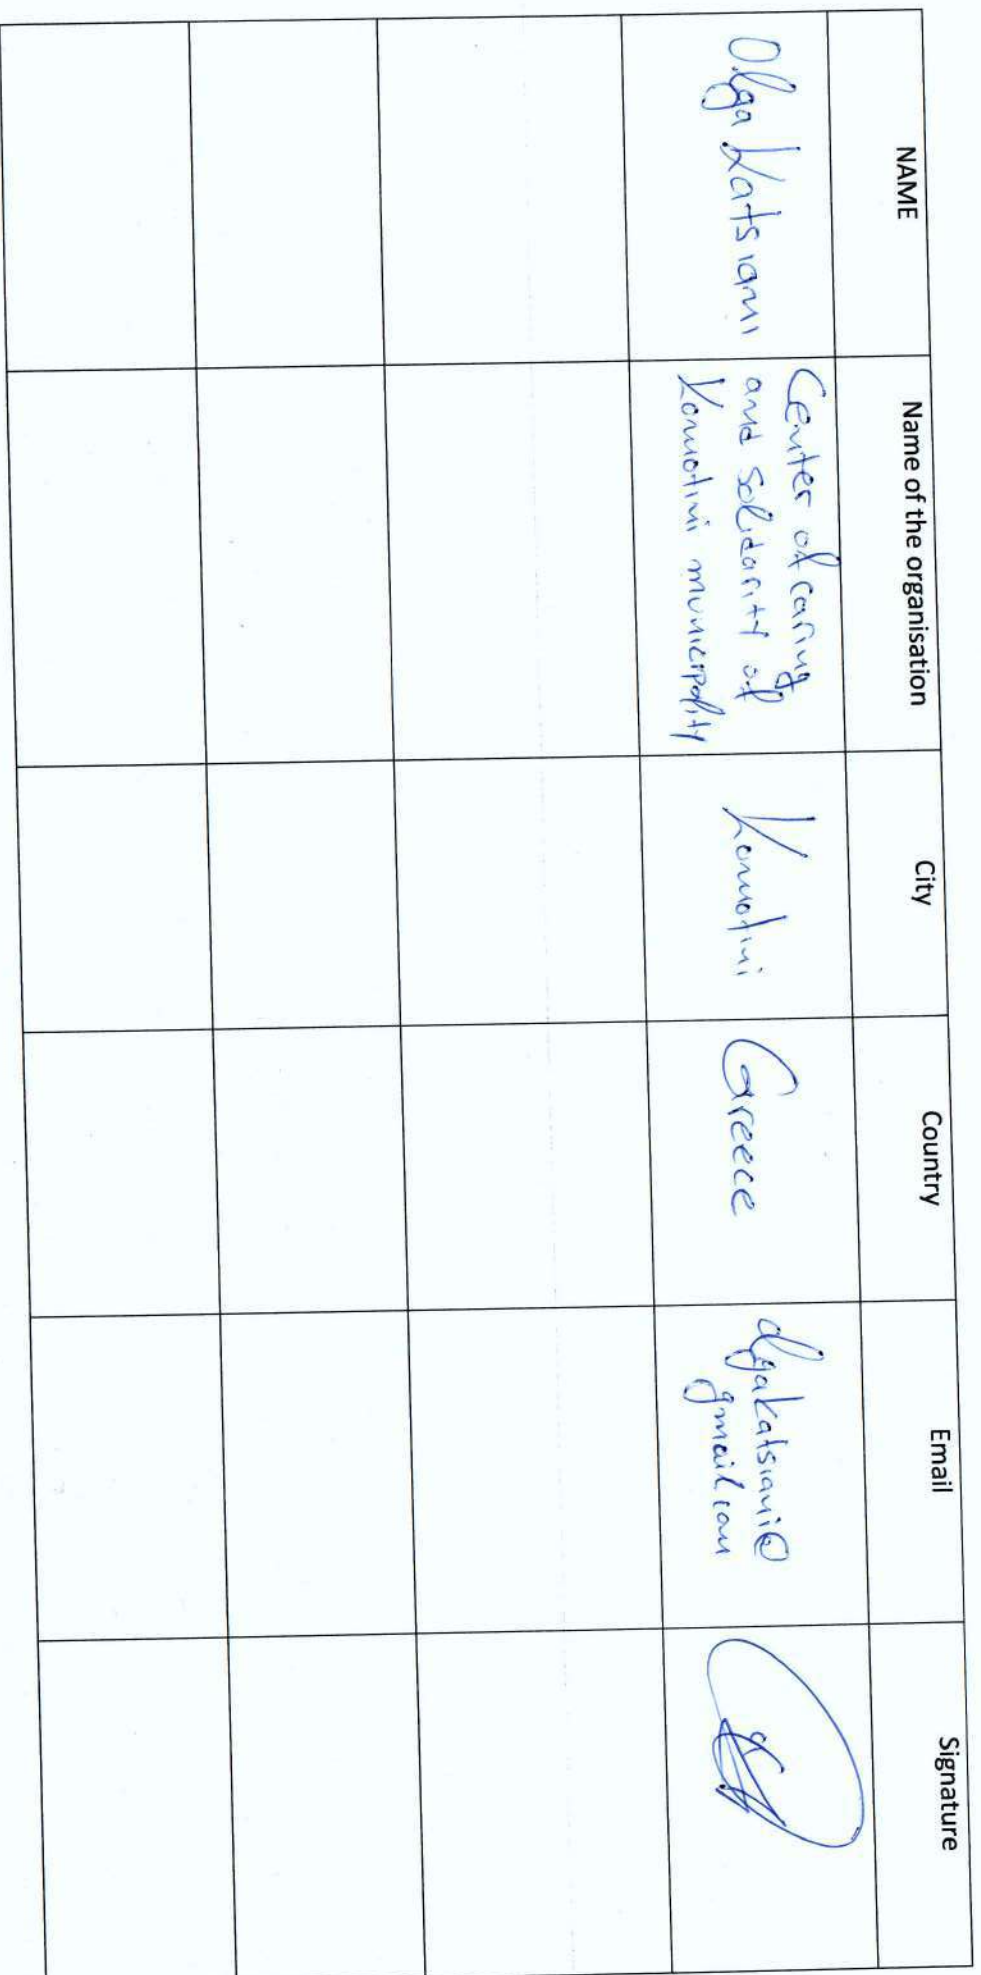 NAME
Name of the organisation
City
Country
Email
Signature
Olga Katsiani
Center of caring
and solidarity of
Komotini municipality
Komotini
Greece
olgakatsiani@
gmail.com